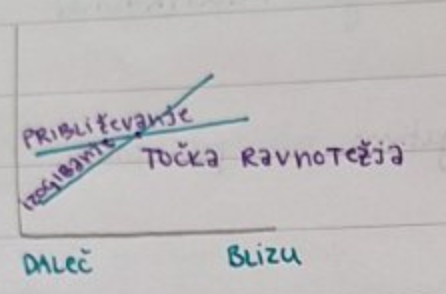 PRIBLIŽevanje
IZOGIBANJE
TOČKA RavnoTežja
DALeČ
BLIZU